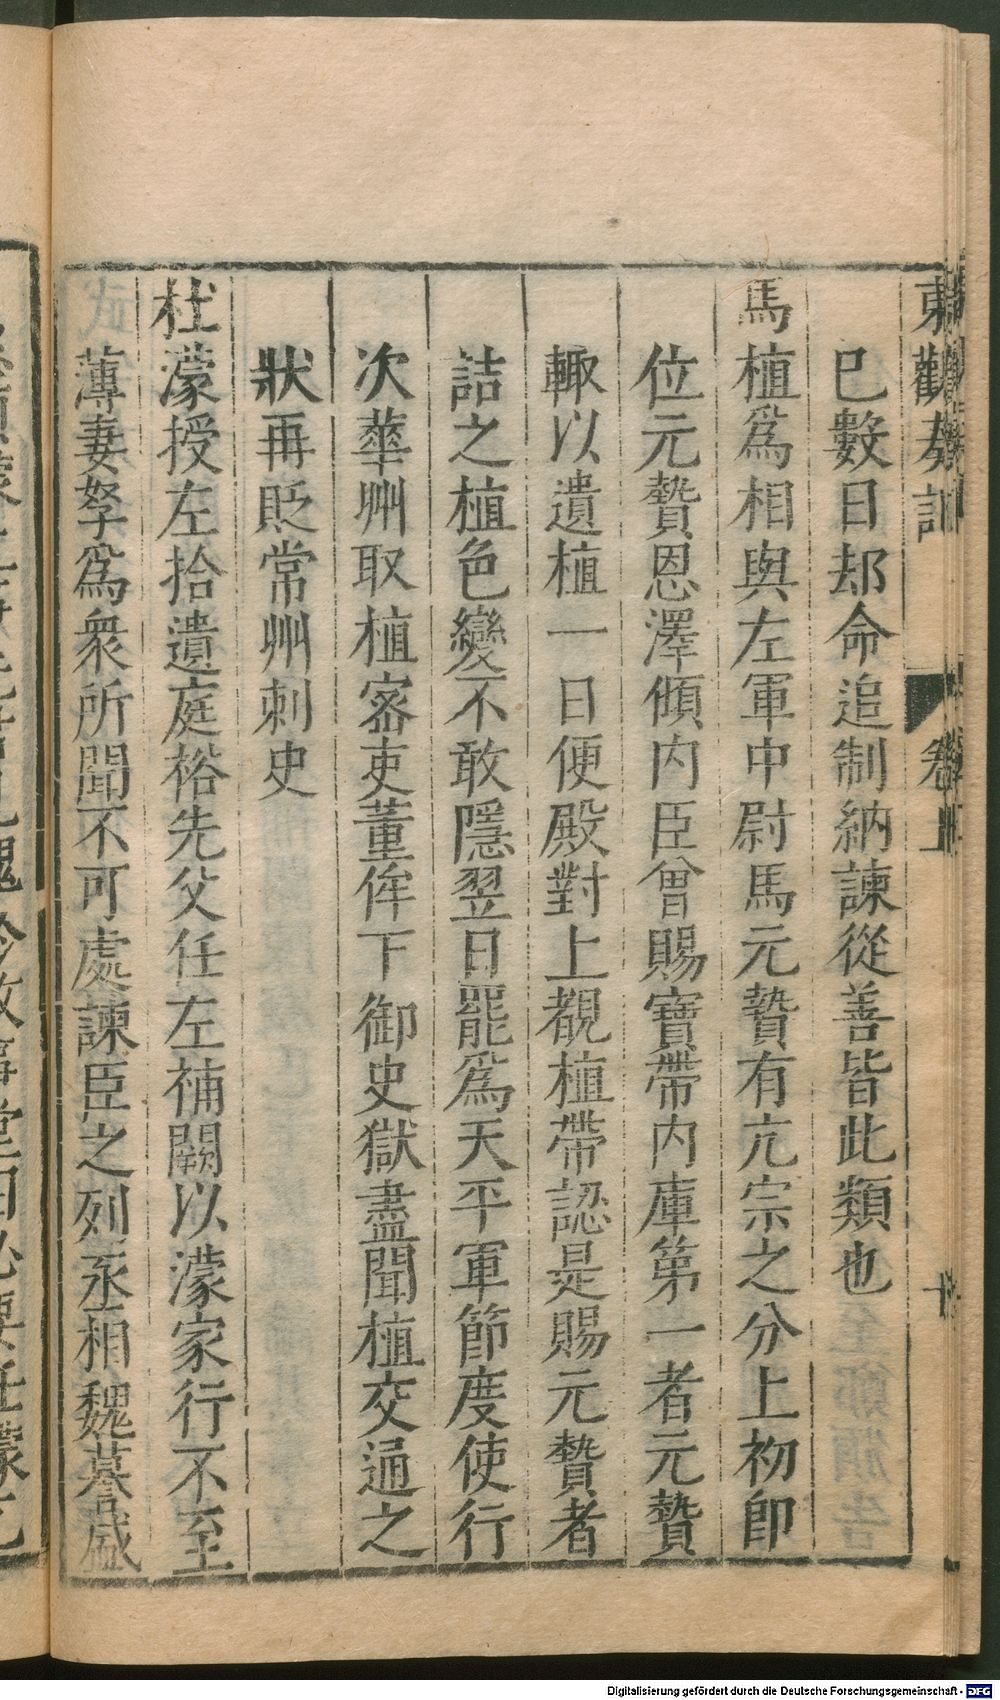 東觀奏記 卷上 十
巳數日却命追制納諫從善皆此類也
馬植爲相與左軍中尉馬元贄有亢宗之分上初卽
位元贄恩澤傾內臣曾賜寶帶內庫第一者元贄
輙以遺植一日便殿對上覩植帶認是賜元贄者
詰之植色變不敢隱翌日罷爲天平軍節度使行
次華州取植密吏董侔下御史獄盡聞植交通之
狀再貶常州刺史
杜濛授左拾遺庭裕先父任左補闕以濛家行不至
薄妻孥爲衆所聞不可處諫臣之列丞相魏謩盛
Digitalisierung gefördert durch die Deutsche Forschungsgemeinschaft - DFG